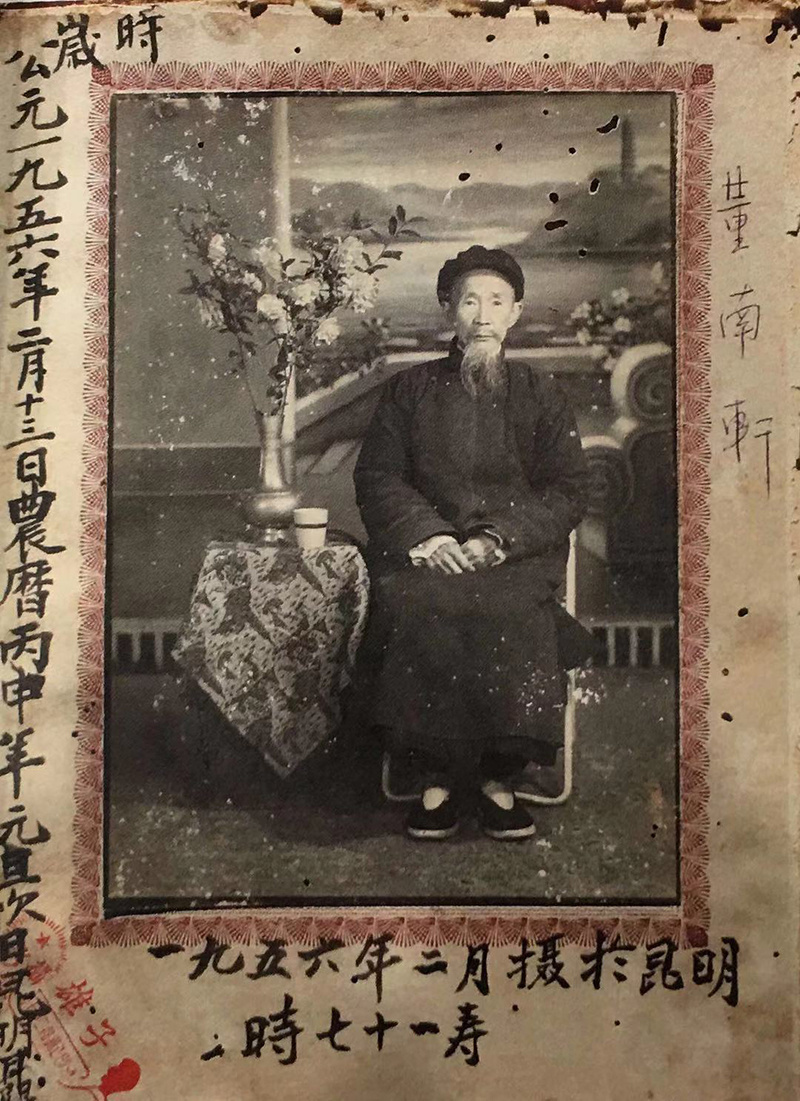 時歲
公元一九五六年二月十三日農曆丙申年元旦次日昆明
董南軒
一九五六年二月摄於昆明
時七十一寿